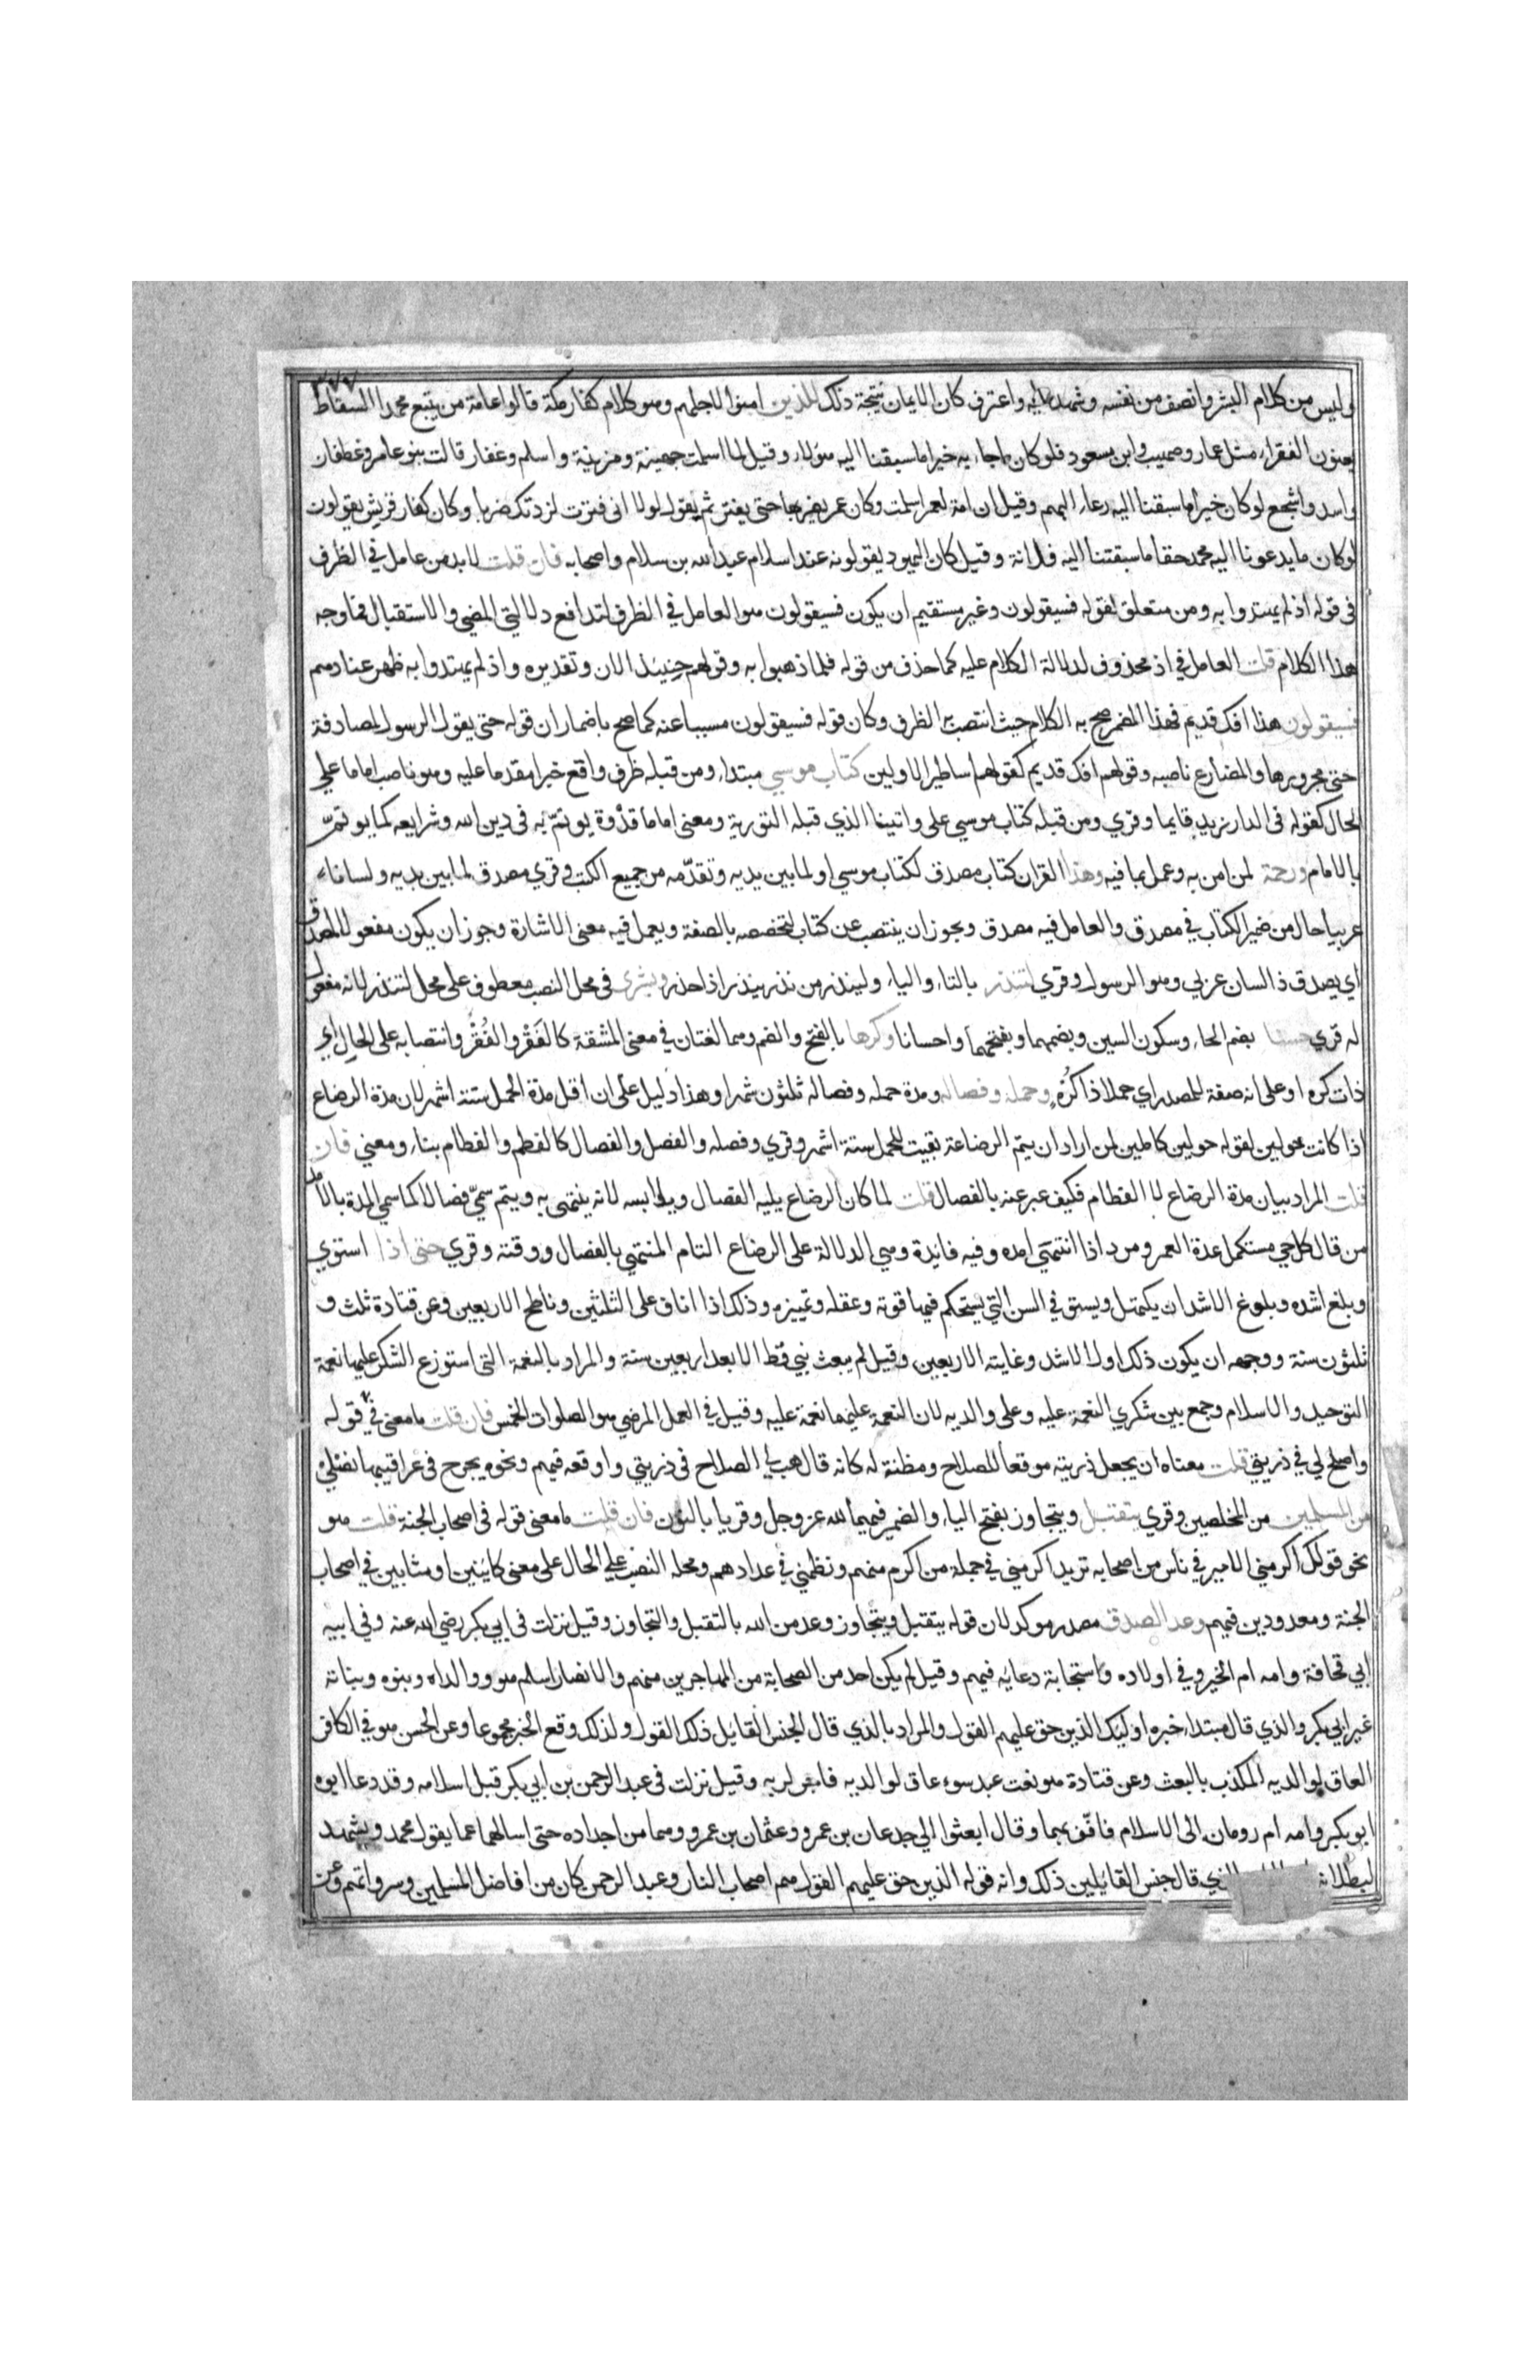 ٣٧٧
وليس من كلام البشر وانصف من نفسه وشهد عليه واعترف كان الايمان نتيجة ذلك للذين امنوا لاجلهم وهو كلام كفار مكة قالوا عامة من يتبع محمدا السقاط
يعنون الفقراء مثل عمار وصهيب وابن مسعود فلو كان ماجاء به خيرا ما سبقنا اليه هؤلاء وقيل لما اسلمت جهينة ومزينة واسلم وغفار قالت بنو عامر وغطفان
واسد واشجع لو كان خيرا ما سبقنا اليه رعاء البهم وقيل ان امة لعمر اسلمت وكان عمر يضربها حتى يفتر ثم يقول لولا انى فترت لزدتك ضربا وكان كفار قريش يقولون
لو كان ما يدعونا اليه محمد حقا ما سبقتنا اليه فلانة وقيل كان اليهود يقولونه عند اسلام عبد الله بن سلام واصحابه فان قلت لا بد من عامل في الظرف
فى قوله اذ لم يهتدوا به ومن متعلق لقوله فسيقولون وغير مستقيم ان يكون فسيقولون هو العامل في الظرف لتدافع دلالتي المضي والاستقبال فما وجه
هذا الكلام قلت العامل في اذ محذوف لدلالة الكلام عليه كما حذف من قوله فلما ذهبوا به وقولهم حينيذ الان وتقديره واذ لم يهتدوا به ظهر عنادهم
فسيقولون هذا افك قديم فهذا المضمر صح به الكلام حيث انتصب به الظرف وكان قوله فسيقولون مسببا عنه كما صح باضمار ان قوله حتى يقول الرسول لمصادفة
حتى مجرورها والمضارع ناصبه وقولهم افك قديم كقولهم اساطير الاولين كتاب موسي مبتداء ومن قبله ظرف واقع خبرا مقدما عليه وهو ناصب اماما علي
الحال كقوله فى الدار زيد قايما وقري ومن قبله كتاب موسي على واتينا الذي قبله التورية ومعنى اماما قدوة يوتم به فى دين الله وشرايعه كما يوتم
بالامام ورحمة لمن امن به وعمل بما فيه وهذا القران كتاب مصدق لكتاب موسي او لما بين يديه وتقدمه من جميع الكتب وقري مصدق لما بين يديه ولسانا
عربيا حال من ضمير الكتاب في مصدق والعامل فيه مصدق ويجوز ان ينتصب عن كتاب لتخصصه بالصفة ويعمل فيه معنى الاشارة وجوز ان يكون مفعولا لمصدق
اي يصدق ذا لسان عربي وهو الرسول وقري لتنذر بالتاء والياء ولينذر من نذر ينذر اذا حذر وبشرى فى محل النصب معطوف على محل لتنذر لانه مفعول
له قري حسنا بضم الحاء وسكون السين وبضمهما وبفتحهما واحسانا وكرها بالفتح والضم وهما لغتان في معنى المشقة كالفَقْر والفُقْر وانتصابه على الحال اي
ذات كره او على انه صفة للمصدر اي حملا ذا كُرْهٍ وحمله وفصاله ومدة حمله وفصاله ثلثون شهرا وهذا دليل على ان اقل مدة الحمل ستة اشهر لان مدة الرضاع
اذا كانت حولين لقوله حولين كاملين لمن اراد ان يتم الرضاعة بقيت للحمل ستة اشهر وقري وفصله والفصل والفصال كالفطم والفطام بناء ومعني فان
قلت المراد بيان مدة الرضاع لا الفطام فكيف عبر عنه بالفصال قلت لما كان الرضاع يليه الفصال ويلابسه لانه ينتهى به ويتم سمي فصالا كما سمي المدة بالامد
من قال كل حي مستكمل عدة العمر ومود اذا انتهى امده وفيه فائدة وهي الدلالة على الرضاع التام المنتهي بالفصال ووقته وقري حتى اذا استوي
وبلغ اشده وبلوغ الاشد ان يكتهل ويستوفي السن التي يستحكم فيها قوته وعقله وتمييزه وذلك اذا اناف على الثلثين وناطح الاربعين وعن قتادة ثلث و
ثلثون سنة ووجهه ان يكون ذلك اول الاشد وغايته الاربعين وقيل لم يبعث نبي قط الا بعد اربعين سنة والمراد بالنعمة التى استوزع الشكر عليها نعمة
التوحيد والاسلام وجمع بين شكري النعمة عليه وعلى والديه لان النعمة عليهما نعمة عليه وقيل في العمل المرضي هو الصلوات الخمس فان قلت ما معنى في قوله
واصلح لي في ذريتي قلت معناه ان يجعل ذريته موقعا للصلاح ومظنة له كانه قال هب لي الصلاح فى ذريتي واوقعه فيهم ونحوه يجرح فى عراقيبها نصلي
من المسلمين من المخلصين وقري يتقبل ويتجاوز بفتح الياء والضمير فيهما لله عز وجل وقريا بالنون فان قلت ما معنى قوله فى اصحاب الجنة قلت هو
نحو قولك اكرمني الامير في ناس من اصحابه تريد اكرمني في جملة من اكرم منهم ونظمني في عدادهم ومحله النصب على الحال على معنى كاينين او مثابين في اصحاب
الجنة ومعدودين فيهم وعد الصدق مصدر موكد لان قوله يتقبل ويتجاوز وعد من الله بالتقبل والتجاوز وقيل نزلت فى ابي بكر رضي الله عنه وفي ابيه
ابي قحافة وامه ام الخير وفي اولاده واستجابة دعايه فيهم وقيل لم يكن احد من الصحابة من المهاجرين منهم والانصار اسلم هو ووالداه وبنوه وبناته
غير ابي بكر والذي قال مبتداء خبره اوليك الذين حق عليهم القول والمراد بالذي قال الجنس القايل ذلك القول ولذلك وقع الخبر مجموعا وعن الحسن هو في الكافر
العاق لوالديه المكذب بالبعث وعن قتادة هو نعت عبد سوء عاق لوالديه فاجر لربه وقيل نزلت فى عبد الرحمن بن ابي بكر قبل اسلامه وقد دعا ابوه
ابو بكر وامه ام رومان الى الاسلام فافف بهما وقال ابعثوا الي جدعان بن عمرو وعثمان بن عمرو وهما من اجداده حتى اسالهما عما يقول محمد ويشهد
لبطلانه الذي قال جنس القائلين ذلك وانه قوله الذين حق عليهم القول هم اصحاب النار وعبد الرحمن كان من افاضل المسلمين وسرواتهم وعن